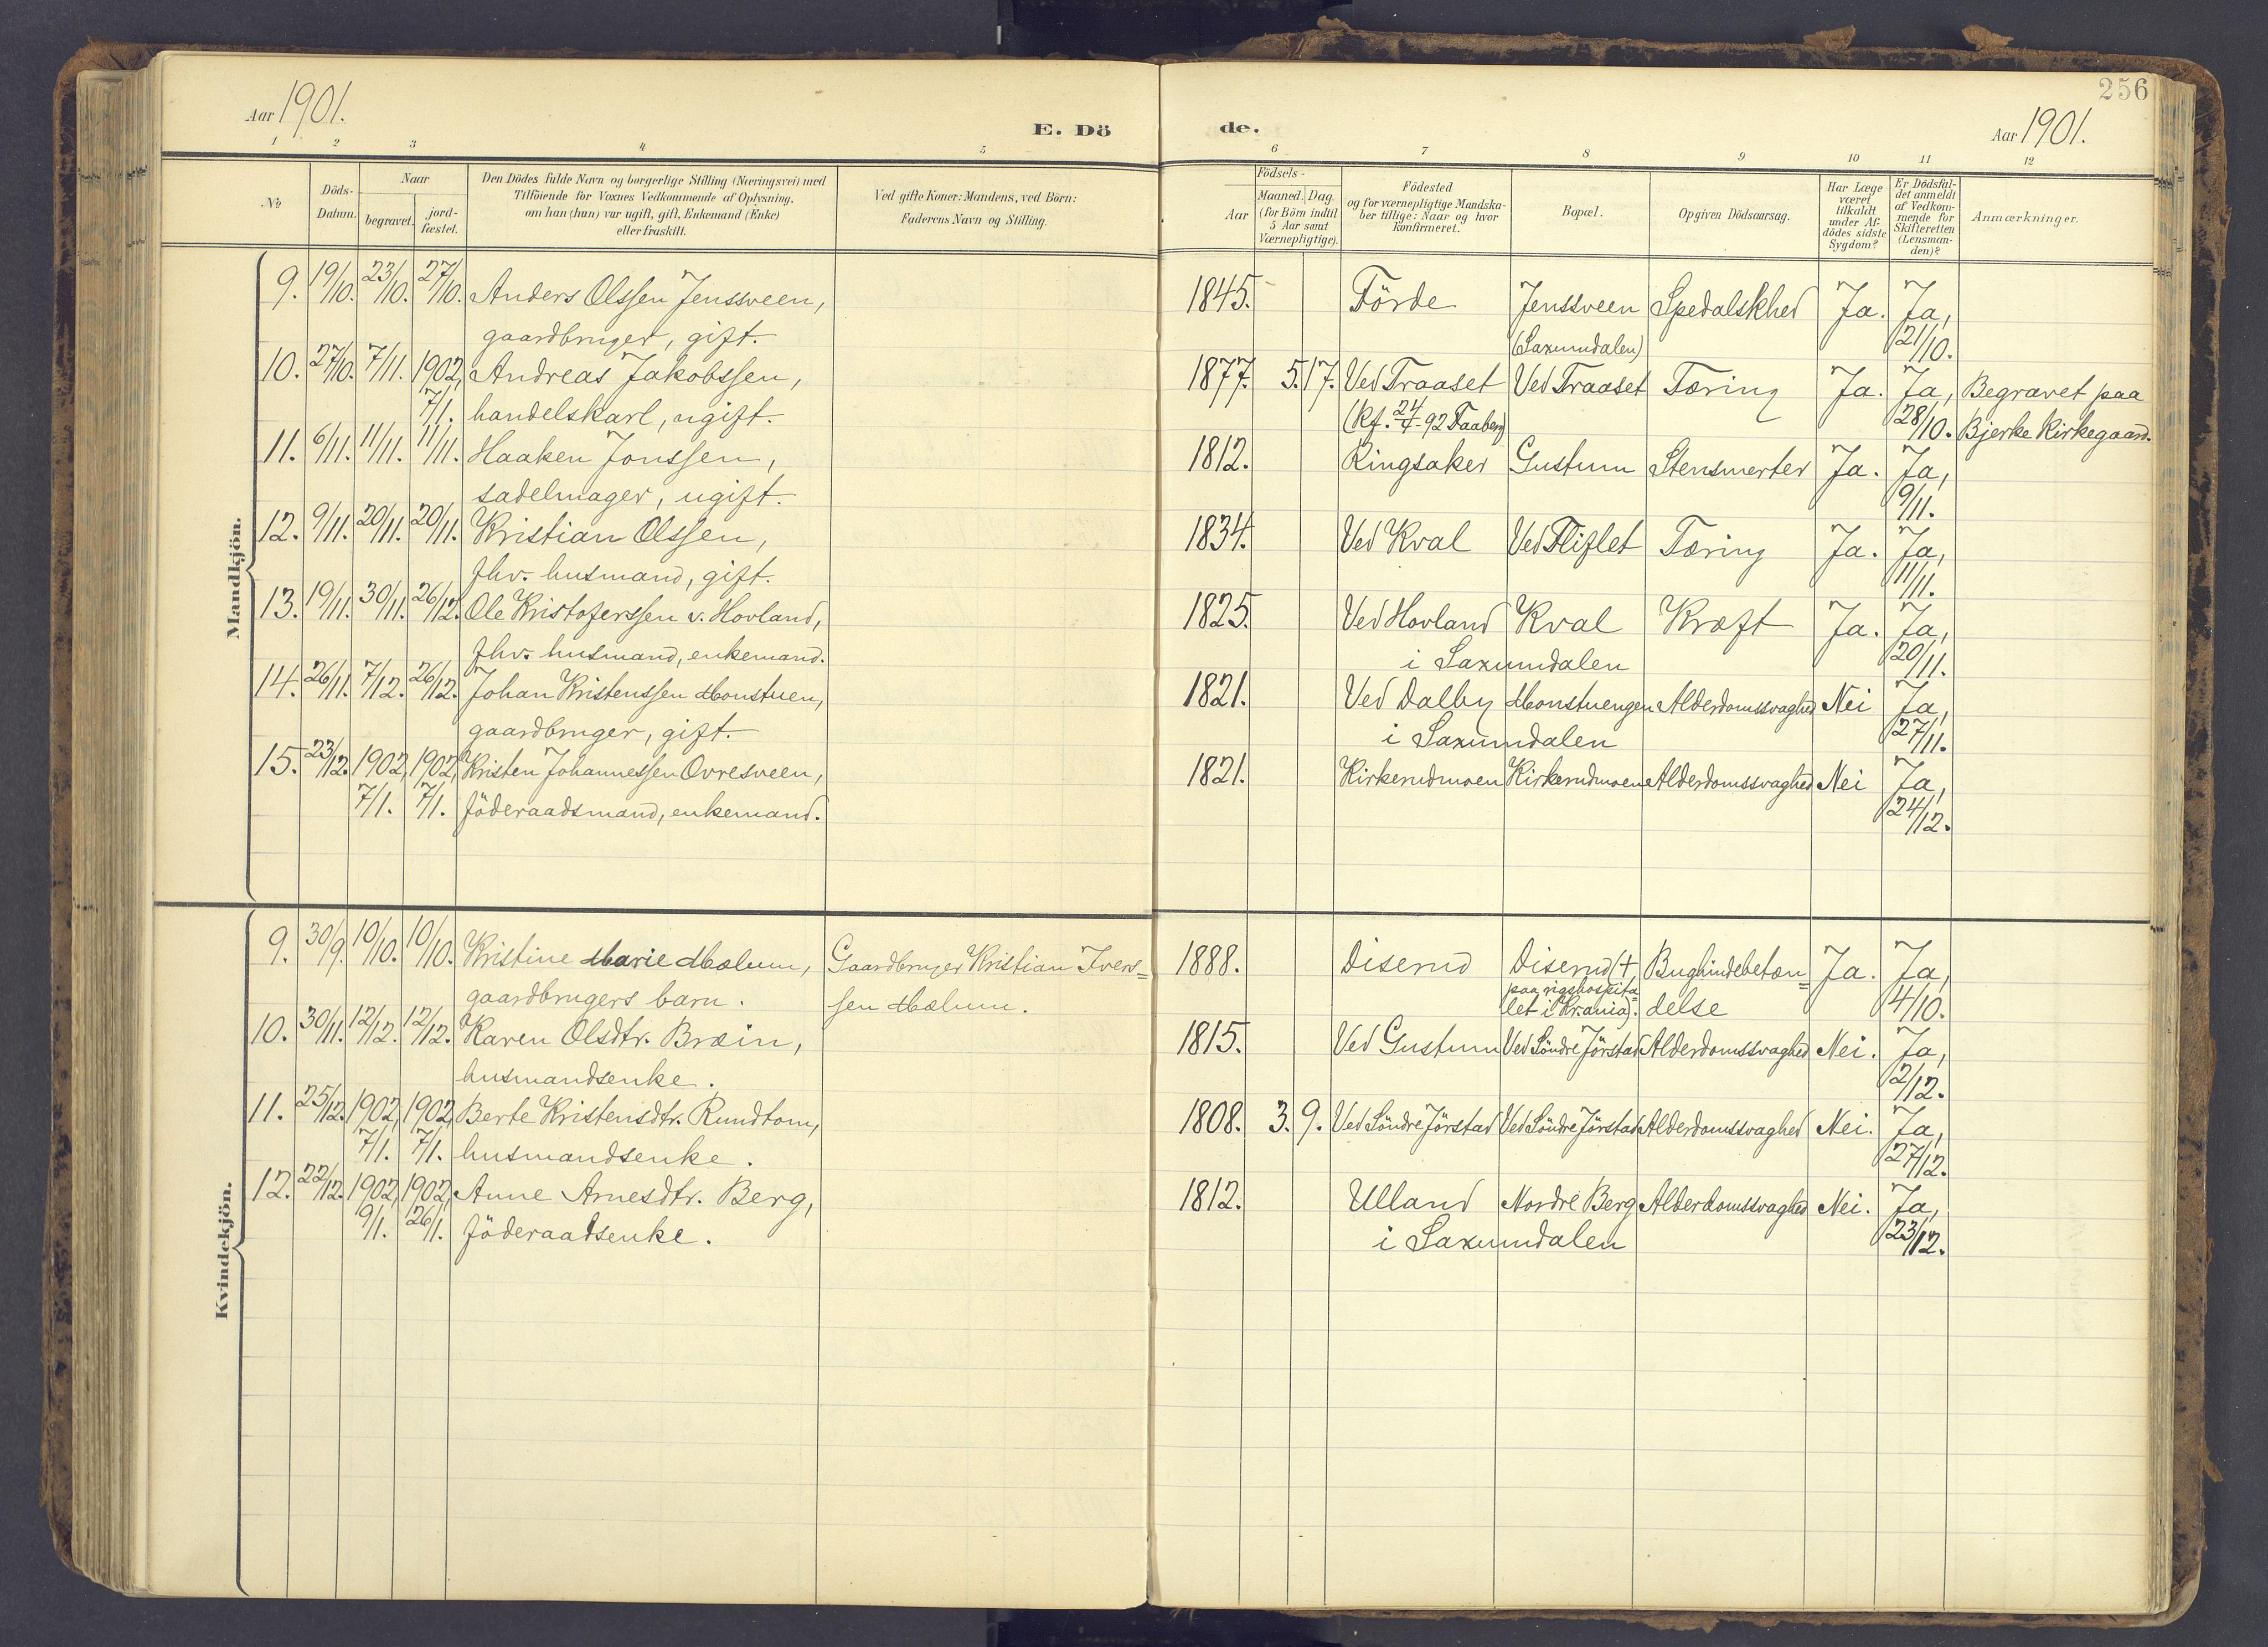 256
Aar 1901.
E. Dö
de.
Aar 1901.
1 2 3 4 5
6 7 8 9 10 11 12
No
Döds-
Datum.
Naar
begravet.
jord-
fæstet.
Den Dödes fulde Navn og borgerlige Stilling (Næringsvei) med
Tilföiende for Voxnes Vedkommende af Oplysning,
om han (hun) var ugift, gift, Enkemand (Enke)
eller fraskilt.
Ved gifte Koner: Mandens, ved Börn:
Faderens Navn og Stilling.
Födsels-
Aar
Maaned. Dag.
(for Börn indtil
5 Aar samt
Værnepligtige).
Födested
og for værnepligtige Mandska-
ber tillige: Naar og hvor
konfirmeret.
Bopæl.
Opgiven Dödsaarsag.
Har Læge
været
tilkaldt
under Af-
dödes sidste
Sygdom?
Er Dödsfal-
det anmeldt
af Vedkom-
mende for
Skifteretten
(Lensman-
den)?
Anmærkninger.
Mandkjön.
9. 19/10. 23/10. 27/10. Anders Olssen Jenssveen, 1845. Förde Jenssveen Spedalskhed Ja. Ja,
gaardbruger, gift. (Saxumdalen) 21/10.
10. 27/10. 7/11. 1902, Andreas Jakobssen, 1877. 5. 17. Ved Traaset Ved Traaset Tæring Ja. Ja, Begravet paa
7/1. handelskarl, ugift. (Kf. 24/4-92 Faaberg) 28/10. Bjerke Kirkegaard.
11. 6/11. 11/11. 11/11. Haaken Jonssen, 1812. Ringsaker Gustum Stensmerter Ja. Ja,
sadelmager, ugift. 9/11.
12. 9/11. 20/11. 20/11. Kristian Olssen, 1834. Ved Kval Ved Fliflet Tæring Ja. Ja,
fhv. husmand, gift. 11/11.
13. 19/11. 30/11. 26/12. Ole Kristoferssen v. Hovland, 1825. Ved Hovland Kval Kræft Ja. Ja,
fhv. husmand, enkemand. i Saxumdalen 20/11.
14. 26/11. 7/12. 26/12. Johan Kristenssen Monstuen, 1821. Ved Dalby Monstuengen Alderdomssvaghed Nei Ja,
gaardbruger, gift. i Saxumdalen 27/11.
15. 23/12. 1902, 1902, Kristen Johannessen Ovresveen, 1821. Kirkerudmoen Kirkerudmoen Alderdomssvaghed Nei Ja,
7/1. 7/1. föderaadsmand, enkemand. 24/12.
Kvindekjön.
9. 30/9. 10/10. 10/10. Kristine Marie Mælum, Gaardbruger Kristian Ivers= 1888. Diserud Diserud (+ Bughindebetæn= Ja. Ja,
gaardbrugers barn. sen Mælum. paa rigshospita= delse 4/10.
let i Kr.ania).
10. 30/11. 12/12. 12/12. Karen Olsdtr. Bræin, 1815. Ved Gustum Ved Söndre Jörstad Alderdomssvaghed Nei. Ja,
husmandsenke. 2/12.
11. 25/12. 1902, 1902, Berte Kristensdtr. Rundtom, 1808. 3. 9. Ved Söndre Jörstad Ved Söndre Jörstad Alderdomssvaghed Nei. Ja,
7/1. 7/1. husmandsenke. 27/12.
12. 22/12. 1902, 1902, Anne Arnesdtr. Berg, 1812. Ulland Nordre Berg Alderdomssvaghed Nei. Ja,
9/1. 26/1. föderaadsenke. i Saxumdalen 23/12.